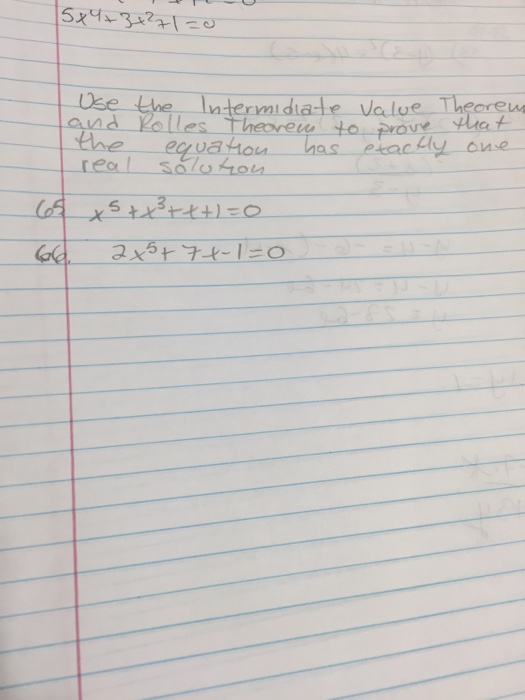 5x4+3x2+1=0
Use the Intermidiate Value Theorem
and Rolles Theorem to prove that
the equation has exactly one
real solution
65 x5+x3+x+1=0
66. 2x5+7x-1=0